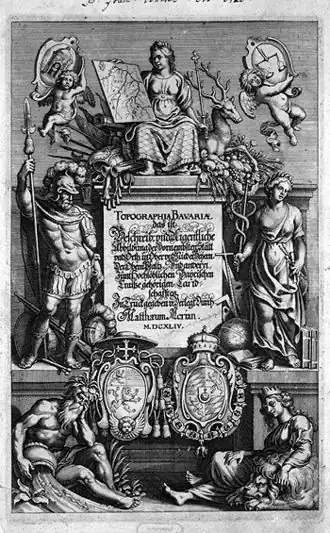 TOPOGRAPHIA BAVARIÆ
das ist
Beschreib: vnd Eigentliche
Abbildung der Vornembsten Stätt
vnd Orth, in Ober vnd Nider Beyern,
Der Obern Pfaltz, Vnd andern,
Zum Hochlöblichen Bayrischen
Craiße gehörigen, Landschafften.
In Truck gegeben vnd Verlegt Durch
Matthæum Merian.
M.DCXLIV.